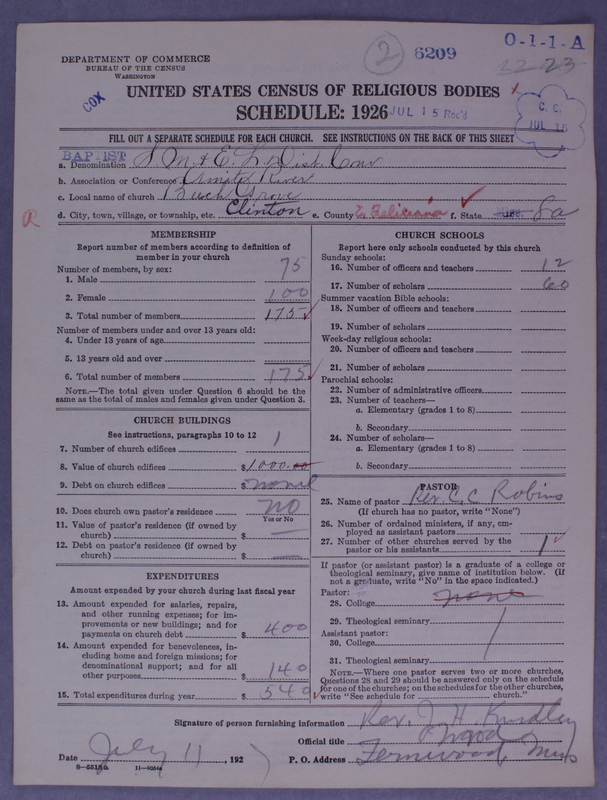 DEPARTMENT OF COMMERCE
BUREAU OF THE CENSUS
WASHINGTON
2 6209
O-1-1-A
COX
UNITED STATES CENSUS OF RELIGIOUS BODIES
SCHEDULE: 1926
JUL 15 Rec'd
C. C.
JUL 16
FILL OUT A SEPARATE SCHEDULE FOR EACH CHURCH. SEE INSTRUCTIONS ON THE BACK OF THIS SHEET
BAPTIST
a. Denomination
b. Association or Conference Amite River
c. Local name of church Grove
d. City, town, village, or township, etc. Clinton e. County E. Feliciana f. State
R
MEMBERSHIP
Report number of members according to definition of
member in your church
Number of members, by sex:
1. Male 75
2. Female 100
3. Total number of members 175
Number of members under and over 13 years old:
4. Under 13 years of age
5. 13 years old and over
6. Total number of members 175
NOTE.—The total given under Question 6 should be the
same as the total of males and females given under Question 3.
CHURCH BUILDINGS
See instructions, paragraphs 10 to 12
7. Number of church edifices 1
8. Value of church edifices $1000.00
9. Debt on church edifices $
10. Does church own pastor's residence no
Yes or No
11. Value of pastor's residence (if owned by
church) $ —
12. Debt on pastor's residence (if owned by
church) $ —
EXPENDITURES
Amount expended by your church during last fiscal year
13. Amount expended for salaries, repairs,
and other running expenses; for im-
provements or new buildings; and for
payments on church debt $ 400
14. Amount expended for benevolences, in-
cluding home and foreign missions; for
denominational support; and for all
other purposes $ 140
15. Total expenditures during year $ 540
CHURCH SCHOOLS
Report here only schools conducted by this church
Sunday schools:
16. Number of officers and teachers 12
17. Number of scholars 60
Summer vacation Bible schools:
18. Number of officers and teachers
19. Number of scholars
Week-day religious schools:
20. Number of officers and teachers
21. Number of scholars
Parochial schools:
22. Number of administrative officers
23. Number of teachers—
a. Elementary (grades 1 to 8)
b. Secondary
24. Number of scholars—
a. Elementary (grades 1 to 8)
b. Secondary
PASTOR
25. Name of pastor Rev. C. C. Robins
(If church has no pastor, write "None")
26. Number of ordained ministers, if any, em-
ployed as assistant pastors
27. Number of other churches served by the
pastor or his assistants 1
If pastor (or assistant pastor) is a graduate of a college or
theological seminary, give name of institution below. (If
not a graduate, write "No" in the space indicated.)
Pastor:
28. College none
29. Theological seminary
Assistant pastor:
30. College
31. Theological seminary
NOTE.—Where one pastor serves two or more churches,
Questions 28 and 29 should be answered only on the schedule
for one of the churches; on the schedules for the other churches,
write "See schedule for church."
Signature of person furnishing information Rev. J. H.
Official title
Date July 11, 192 P. O. Address Fernwood, Miss
8—5518a 11—9054a